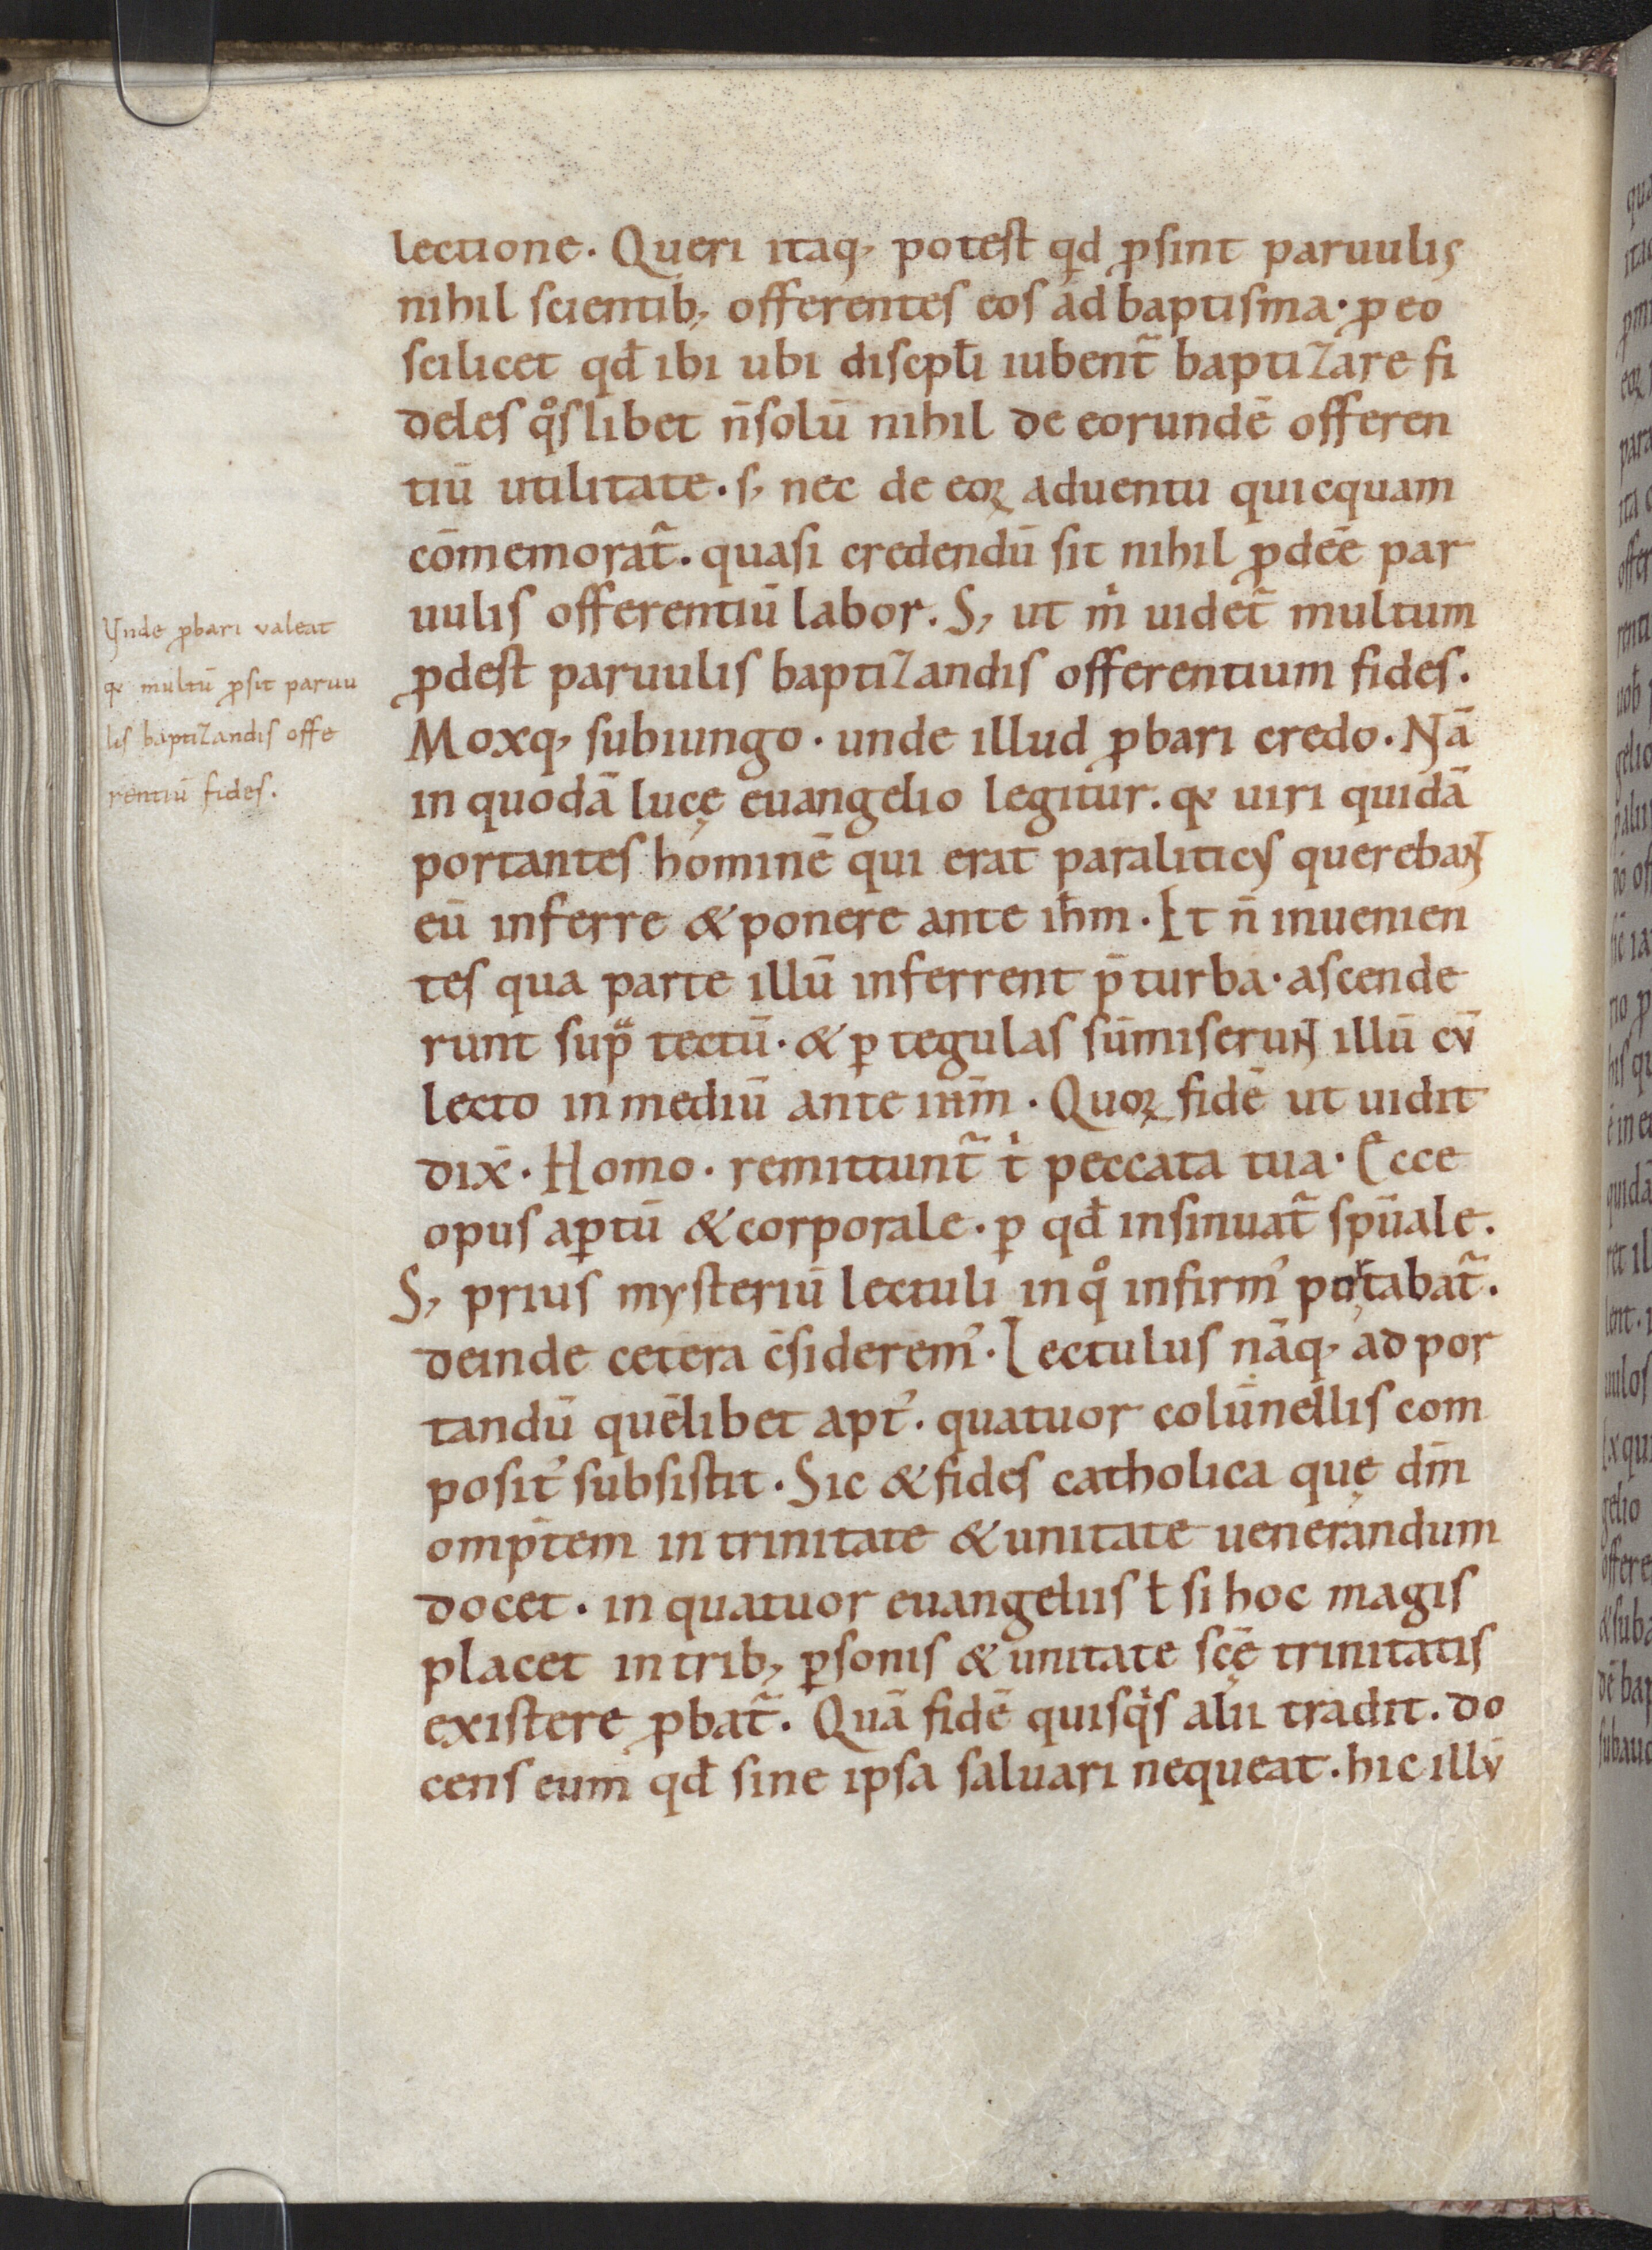 lectione. Queri itaq; potest qd ꝓsint paruulis
nihil scientib; offerentes eos ad baptisma. ꝓ eo
scilicet qđ ibi ubi discipłi iubent̃ baptizare fi
deles qͦslibet n̄ solū nihil de eorundē offeren
tiū utilitate. s; nec de eoꝝ aduentu quicquam
cōmemorat̃. quasi credendū sit nihil ꝓdeē̄ par
uulis offerentiū labor. S; ut m̍ uidet̃ multum
ꝓdest paruulis baptizandis offerentium fides.
Moxq; subiungo. unde illud ꝓbari credo. Nā
in quodā lucę euangelio legitur. qꝫ uiri quidā
portantes hominē qui erat paraliticus querebant
eū inferre & ponere ante ihm̄. Et n̄ inuenien
tes qua parte illū inferrent p̄ turba. ascende
runt supᷓ tectū. & ꝑ tegulas sūmiserunt illū cū
lecto in mediū ante ihm̄. Quoꝝ fidē ut uidit
dix̄. Homo. remittunt̃ t̍ peccata tua. Ecce
opus aꝑtū & corporale. ꝑ qđ insinuat̃ spūale.
S; prius mysteriū lectuli in qͦ infirm᾿ portabat̃.
deinde cetera c̄siderem᾿. Lectulus nāq; ad por
tandū quēlibet apt᾿. quatuor colūnellis com
posit᾿ subsistit. Sic & fides catholica quę dm̄
omp̄tem in trinitate & unitate uenerandum
docet. in quatuor euangeliis ł si hoc magis
placet in trib; ꝑsonis & unitate scę̄ trinitatis
existere ꝓbat̃. Quā fidē quisq̍s alii tradit. do
cens eum qđ sine ipsa saluari nequeat. hic illū
Vnde ꝓbari valeat
qꝫ multū ꝓsit paruu
lis baptizandis offe
rentiū fides.